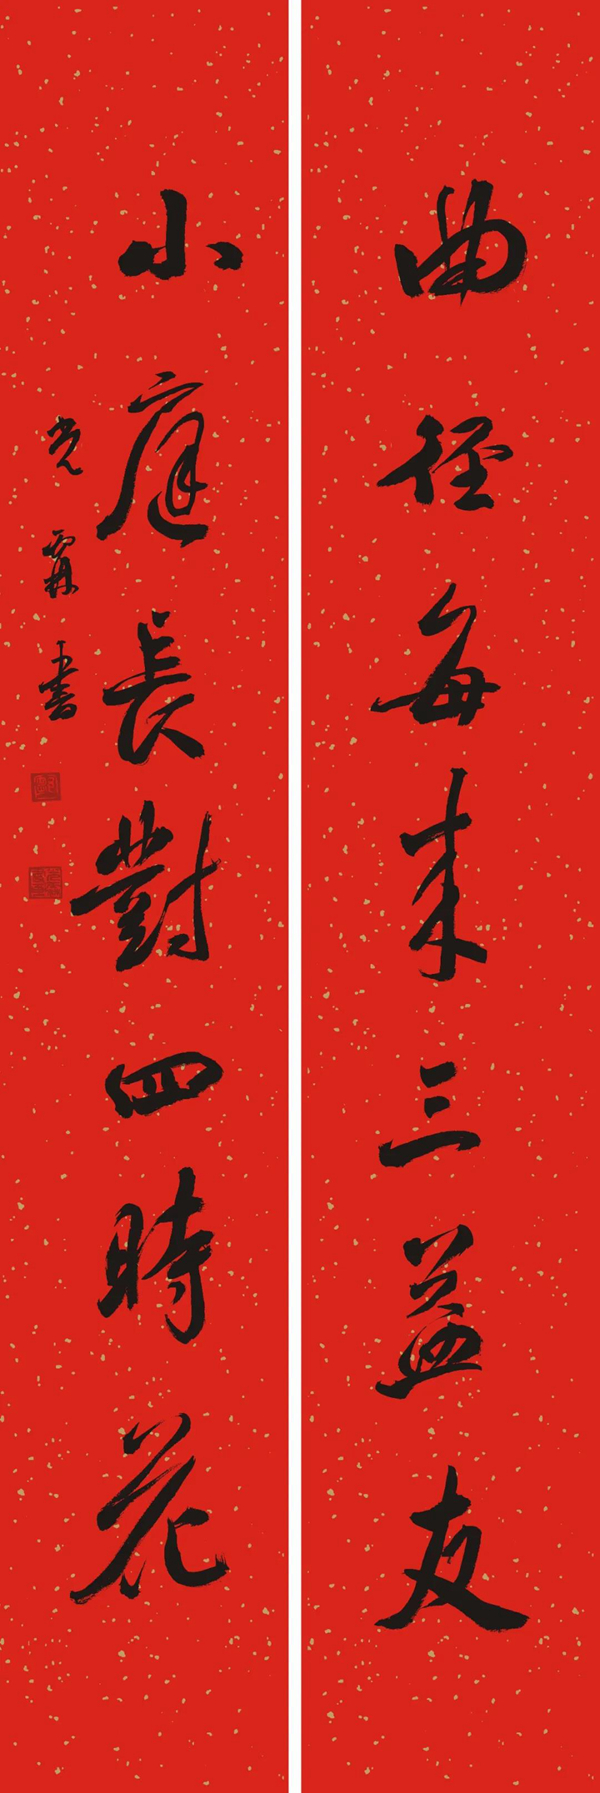 曲径每来三益友
小庭長對四時花
光霖書